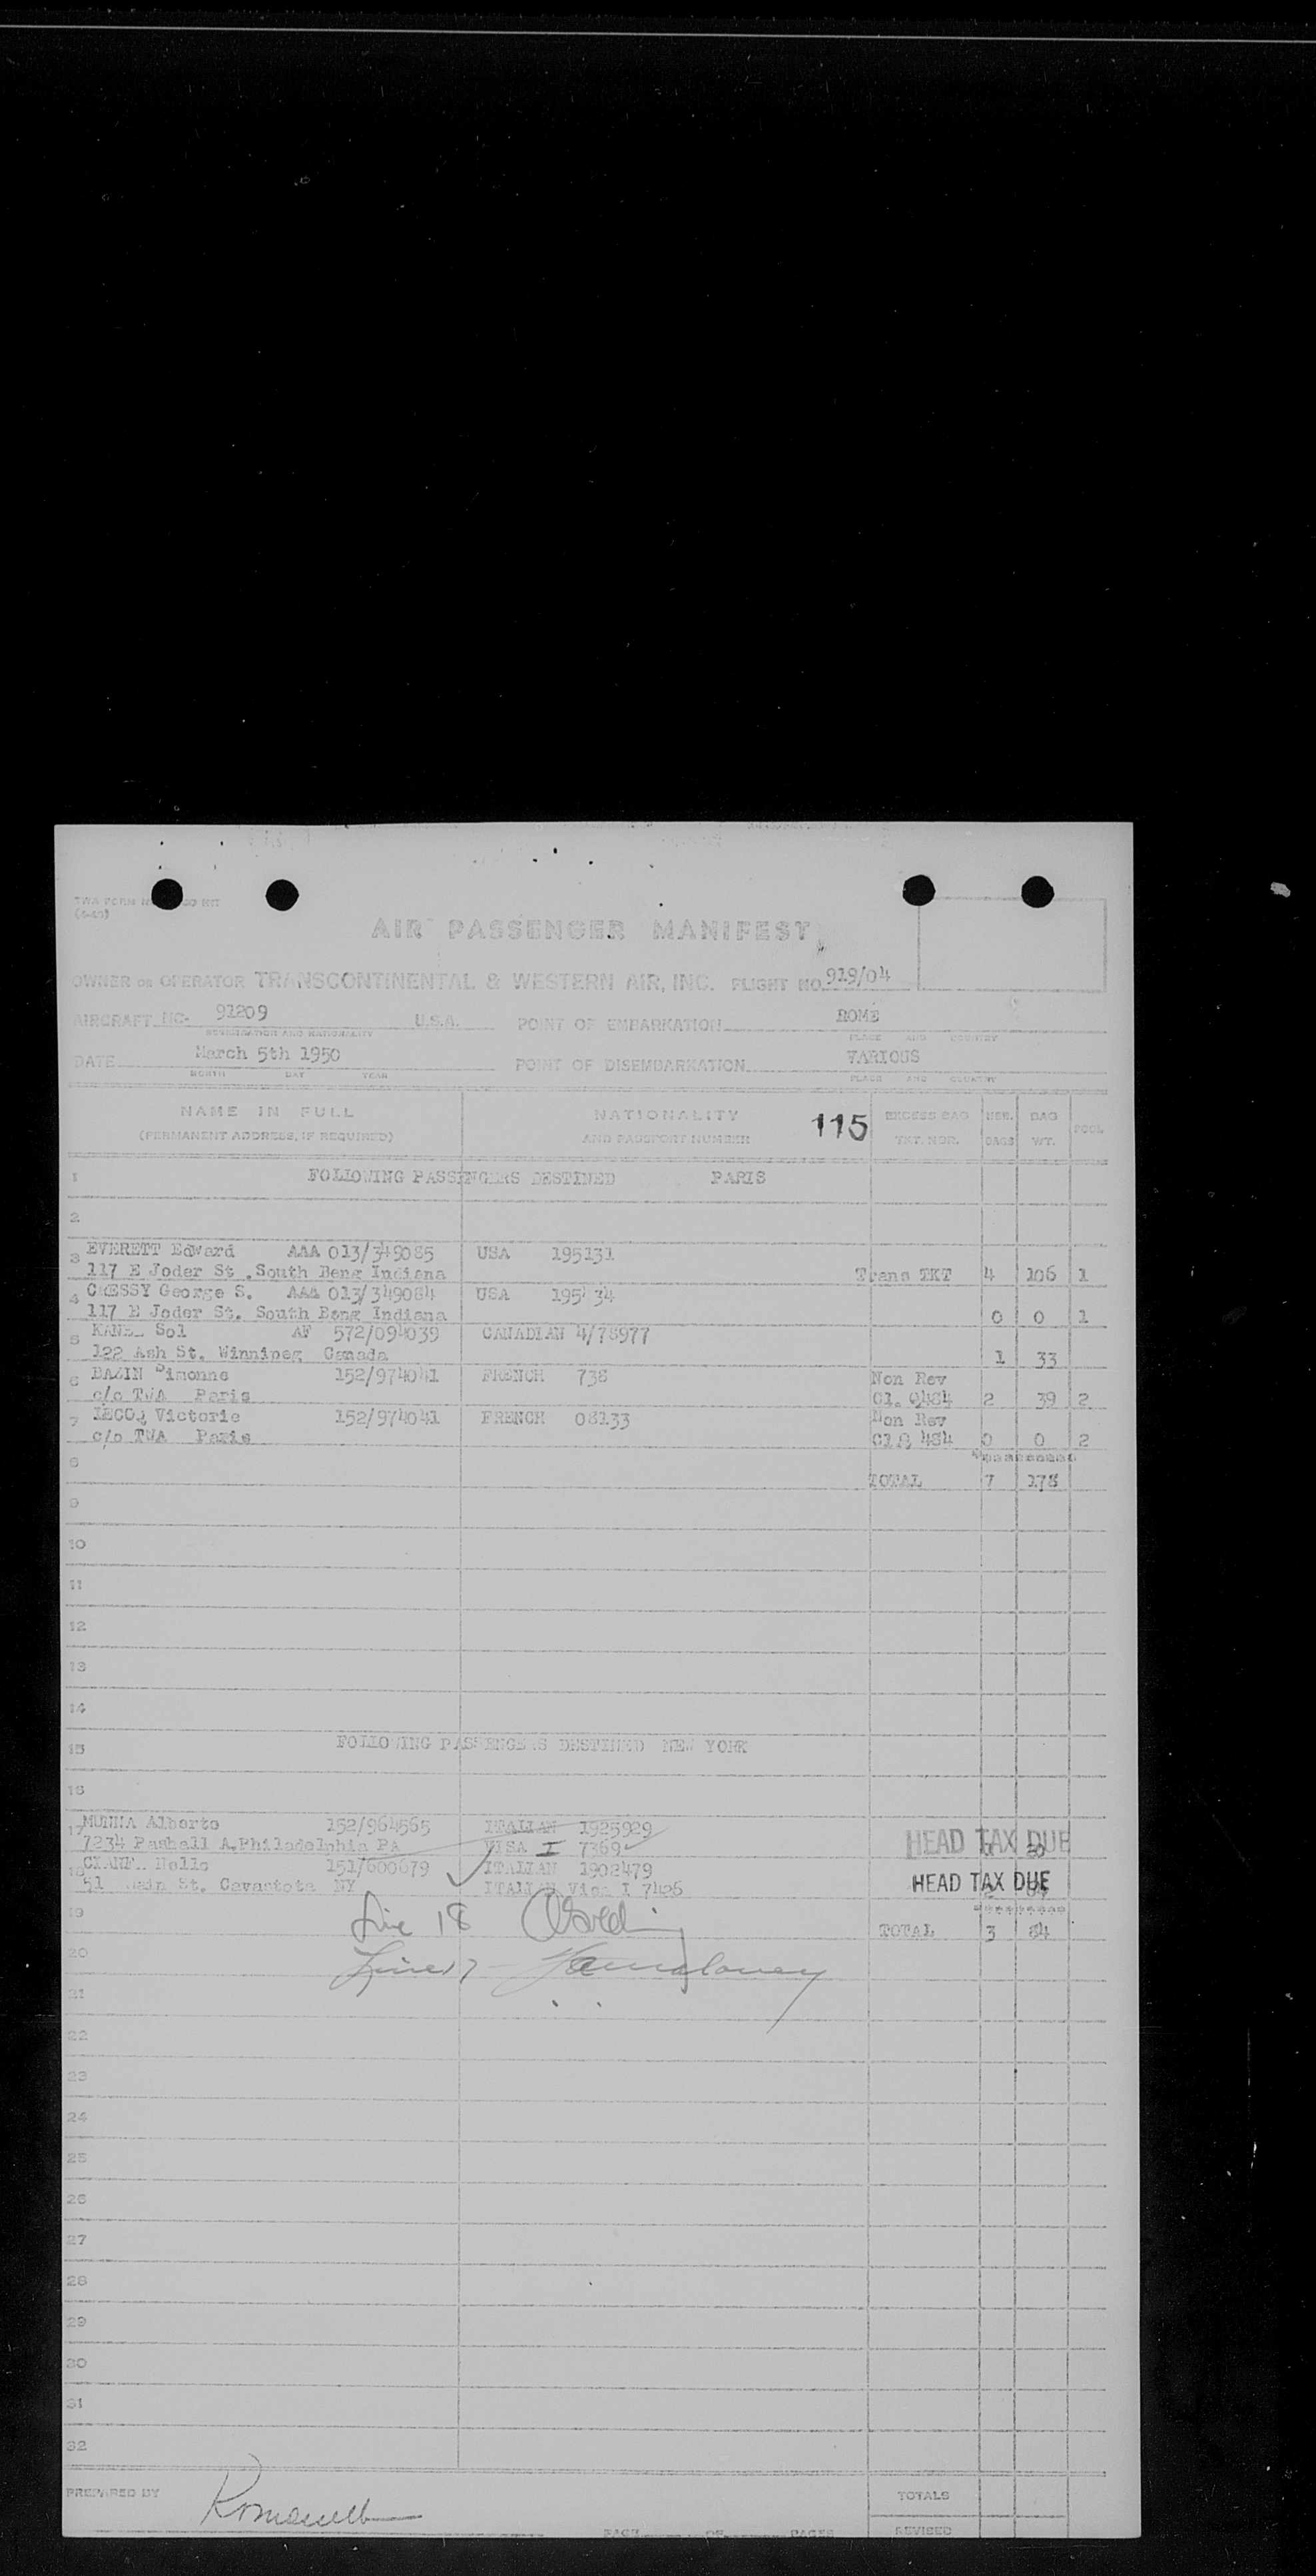 (4-49)
AIR PASSENGER MANIFEST
OWNER OR OPERATOR TRANSCONTINENTAL & WESTERN AIR, INC. FLIGHT NO. 919/04
AIRCRAFT NC- 91209 U.S.A. POINT OF EMBARKATION ROME
REGISTRATION AND NATIONALITY PLACE AND COUNTRY
DATE March 5th 1950 POINT OF DISEMBARKATION VARIOUS
MONTH DAY YEAR PLACE AND COUNTRY
NAME IN FULL NATIONALITY 115 EXCESS BAG NBR. BAG POOL
(PERMANENT ADDRESS, IF REQUIRED) AND PASSPORT NUMBER TKT. NBR. BAGS WT.
1 FOLLOWING PASSENGERS DESTINED PARIS
2
3 EVERETT Edward AAA 013/349085 USA 195131
117 E Joder St. South Beng Indiana Trans TKT 4 106 1
4 CRESSY George S. AAA 013/349084 USA 195 34
117 E Joder St. South Beng Indiana 0 0 1
5 Sol AF 572/094039 CANADIAN 4/78977
122 Ash St. Winnipeg Canada 1 33
6 BAZIN Simonne 152/974041 FRENCH 738 Non Rev
c/o TWA Paris Cl. 0484 2 39 2
7 LECOQ Victorie 152/974041 FRENCH 08133 Non Rev
c/o TWA Paris 484 0 0 2
8
TOTAL 7 178
9
10
11
12
13
14
15 FOLLOWING PASSENGERS DESTINED NEW YORK
16
17 MUNNA Alberto 152/964565 ITALIAN 1925929
7234 Pashall A.Philadelphia PA VISA I 7369 HEAD TAX DUE
18 Nello 151/600679 ITALIAN 1902479
51 Main St. Cavastota NY ITALIAN Visa I HEAD TAX DUE
19 Line 18 TOTAL 3 84
20 Line 17
21
22
23
24
25
26
27
28
29
30
31
32
PREPARED BY TOTALS
PAGE OF PAGES REVISED